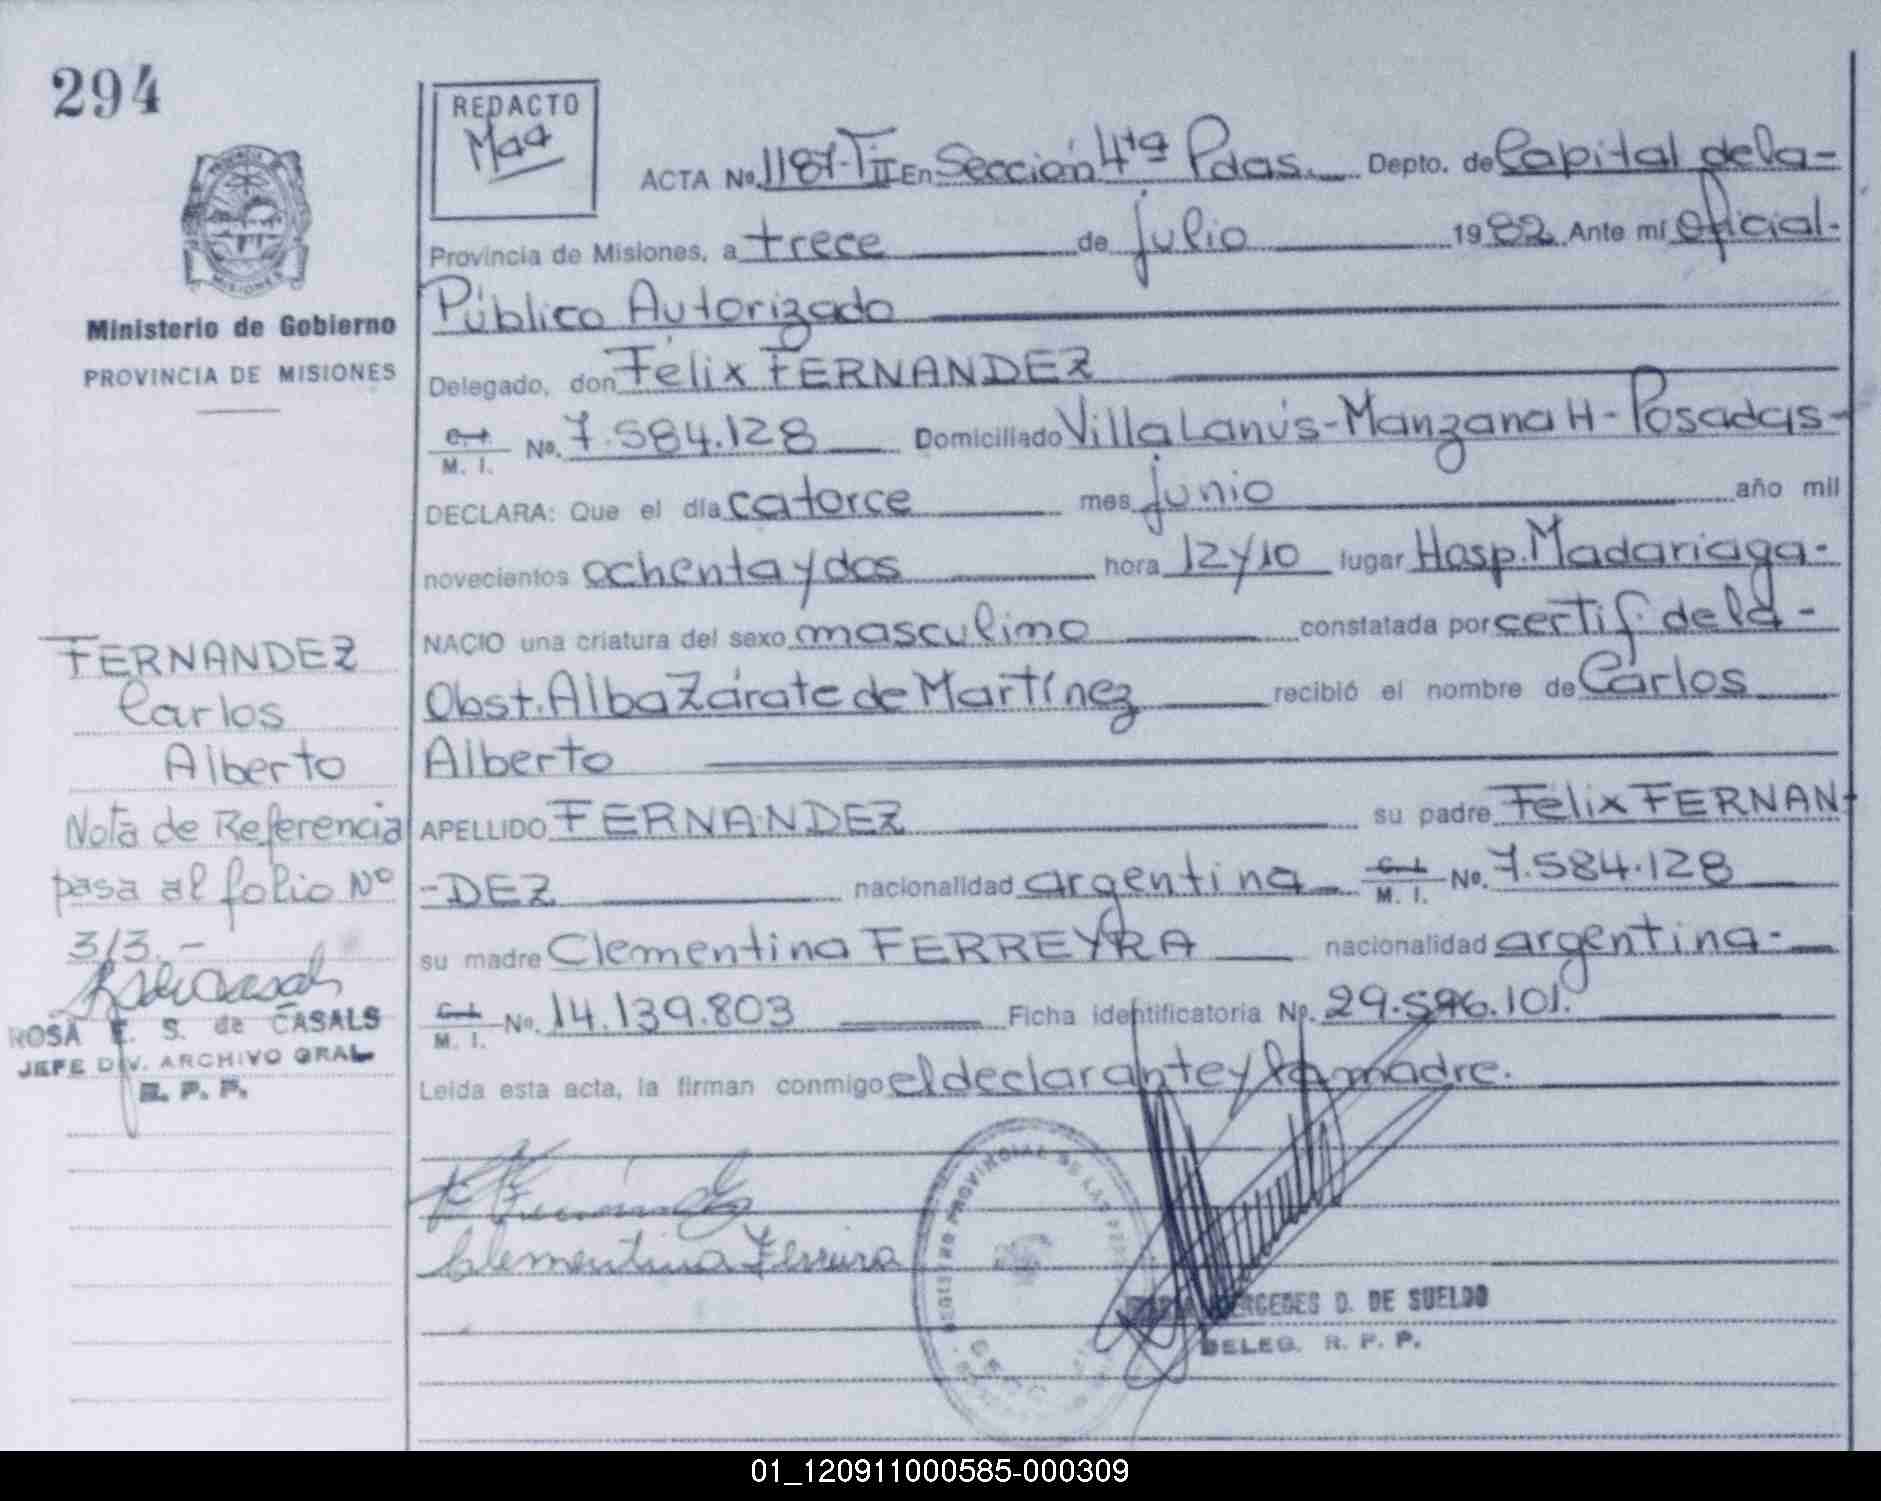 294
REDACTO
ACTA No. 1187-TII En Sección 4ta Pdas. Depto. de Capital de la-
Provincia de Misiones, a trece de julio 1982 Ante mí oficial-
Público Autorizado
Ministerio de Gobierno
PROVINCIA DE MISIONES
Delegado, don Félix FERNANDEZ
C. I.
M. I. No. 7.584.128 Domiciliado Villa Lanús-Manzana H-Posadas-
DECLARA: Que el día catorce mes junio año mil
novecientos ochenta y dos hora 12 y 10 lugar Hosp. Madariaga-
NACIO una criatura del sexo masculino constatada por certif. de la-
Obst. Alba Zárate de Martínez recibió el nombre de Carlos
Alberto
APELLIDO FERNANDEZ su padre Felix FERNAN-
-DEZ nacionalidad argentina C. I. M. I. No. 7.584.128
su madre Clementina FERREYRA nacionalidad argentina-
C. I. M. I. No. 14.139.803 Ficha identificatoria No. 29.596.101.
Leída esta acta, la firman conmigo el declarante y la madre.
Clementina Ferreira
REGISTRO PROVINCIAL DE LAS
MERCEDES D. DE SUELDO
DELEG. R. P. P.
FERNANDEZ
Carlos
Alberto
Nota de Referencia
pasa al folio No
313.-
ROSA E. S. de CASALS
JEFE DIV. ARCHIVO GRAL
R. P. P.
01_120911000585-000309